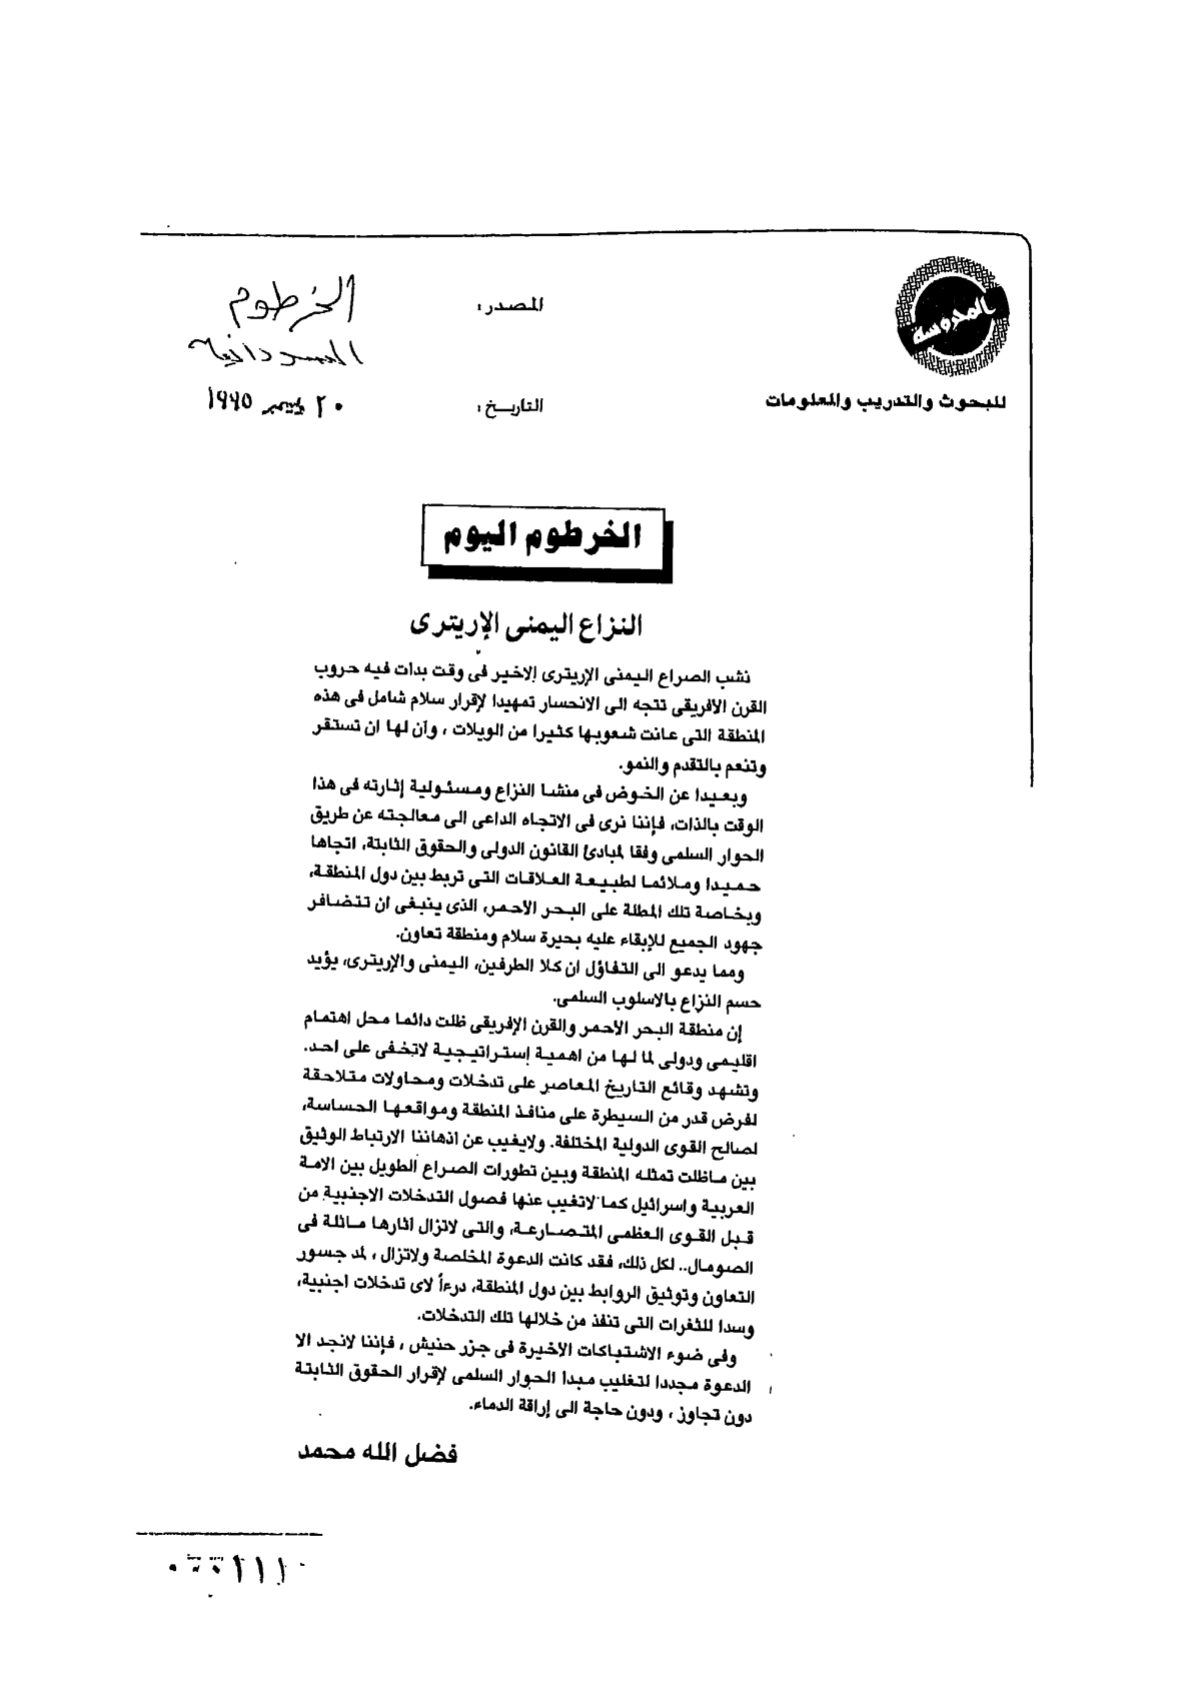 المحروسة
للبحوث والتدريب والمعلومات
المصدر: الخرطوم
السودانية
التاريخ: ٢٠ ديسمبر ١٩٩٥
الخرطوم اليوم
النزاع اليمنى الإريترى
نشب الصراع اليمنى الإريترى الاخير فى وقت بدات فيه حروب
القرن الافريقى تتجه الى الانحسار تمهيدا لإقرار سلام شامل فى هذه
المنطقة التى عانت شعوبها كثيرا من الويلات ، وآن لها ان تستقر
وتنعم بالتقدم والنمو.
وبعيدا عن الخوض فى منشا النزاع ومسئولية إثارته فى هذا
الوقت بالذات، فإننا نرى فى الاتجاه الداعى الى معالجته عن طريق
الحوار السلمى وفقا لمبادئ القانون الدولى والحقوق الثابتة، اتجاها
حميدا وملائما لطبيعة العلاقات التى تربط بين دول المنطقة،
وبخاصة تلك المطلة على البحر الاحمر، الذى ينبغى ان تتضافر
جهود الجميع للإبقاء عليه بحيرة سلام ومنطقة تعاون.
ومما يدعو الى التفاؤل ان كلا الطرفين، اليمنى والإريترى، يؤيد
حسم النزاع بالاسلوب السلمى.
إن منطقة البحر الاحمر والقرن الإفريقى ظلت دائما محل اهتمام
اقليمى ودولى لما لها من اهمية إستراتيجية لاتخفى على احد.
وتشهد وقائع التاريخ المعاصر على تدخلات ومحاولات متلاحقة
لفرض قدر من السيطرة على منافذ المنطقة ومواقعها الحساسة،
لصالح القوى الدولية المختلفة. ولايغيب عن اذهاننا الارتباط الوثيق
بين ماظلت تمثله المنطقة وبين تطورات الصراع الطويل بين الامة
العربية واسرائيل كما لاتغيب عنها فصول التدخلات الاجنبية من
قبل القوى العظمى المتصارعة، والتى لاتزال اثارها ماثلة فى
الصومال.. لكل ذلك، فقد كانت الدعوة المخلصة ولاتزال ، لمد جسور
التعاون وتوثيق الروابط بين دول المنطقة، درءاً لاى تدخلات اجنبية،
وسدا للثغرات التى تنفذ من خلالها تلك التدخلات.
وفى ضوء الاشتباكات الاخيرة فى جزر حنيش ، فإننا لانجد الا
الدعوة مجددا لتغليب مبدا الحوار السلمى لإقرار الحقوق الثابتة
دون تجاوز ، ودون حاجة الى إراقة الدماء.
فضل الله محمد